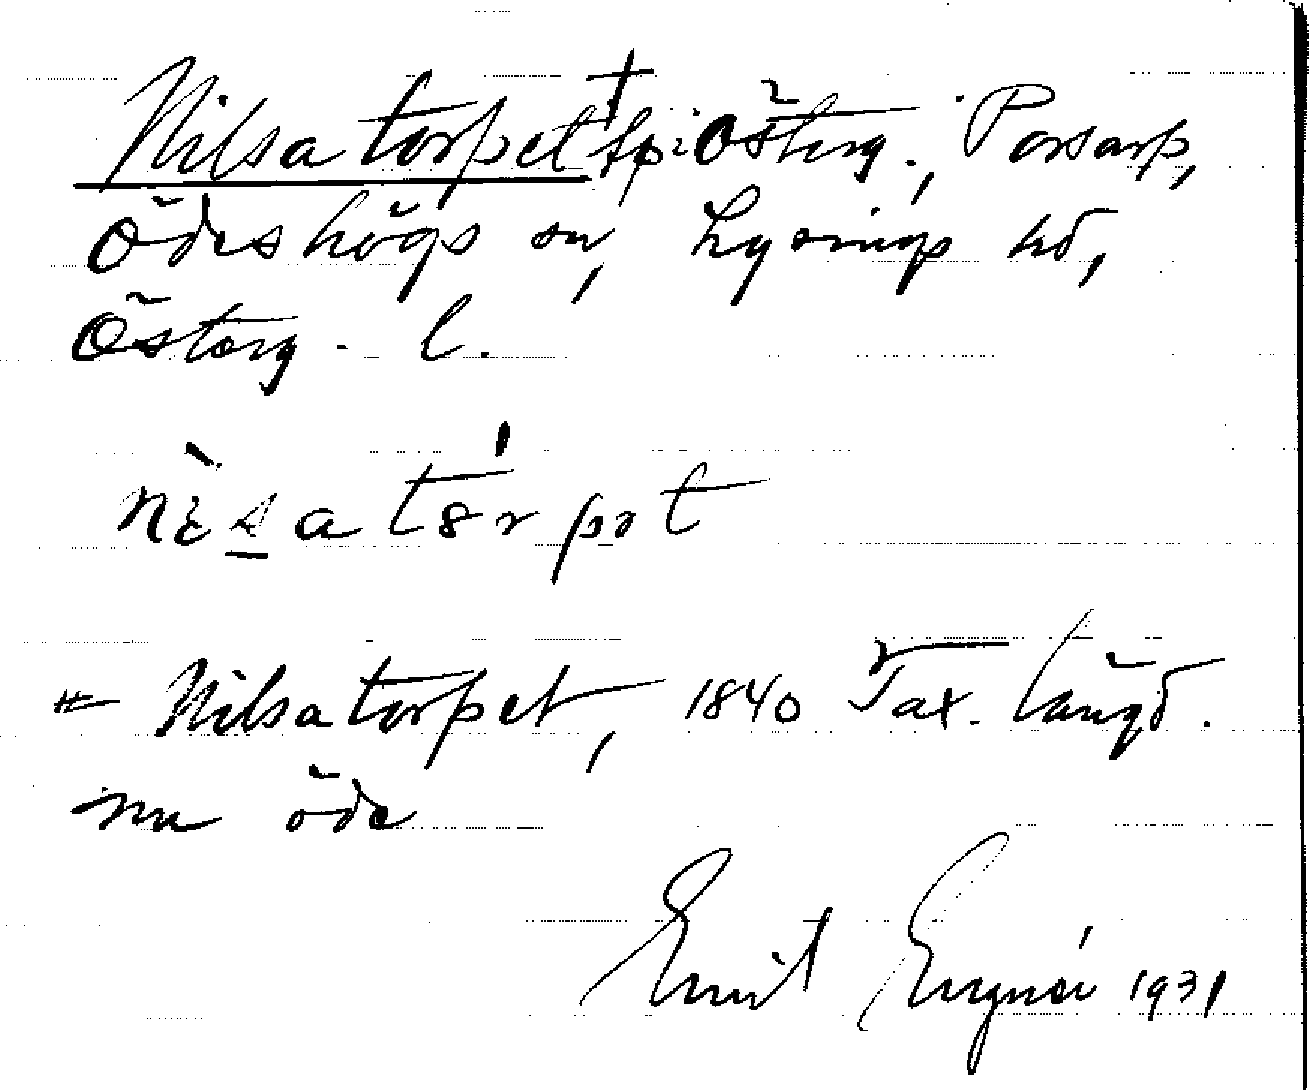 Nilsatorpet † tp i Österg., Porsarp,
Ödeshögs sn, Lysings hd,
Österg. l.
Nilsatorpet, 1840 Tax. längd.
nu öde
Emil Engnér 1931